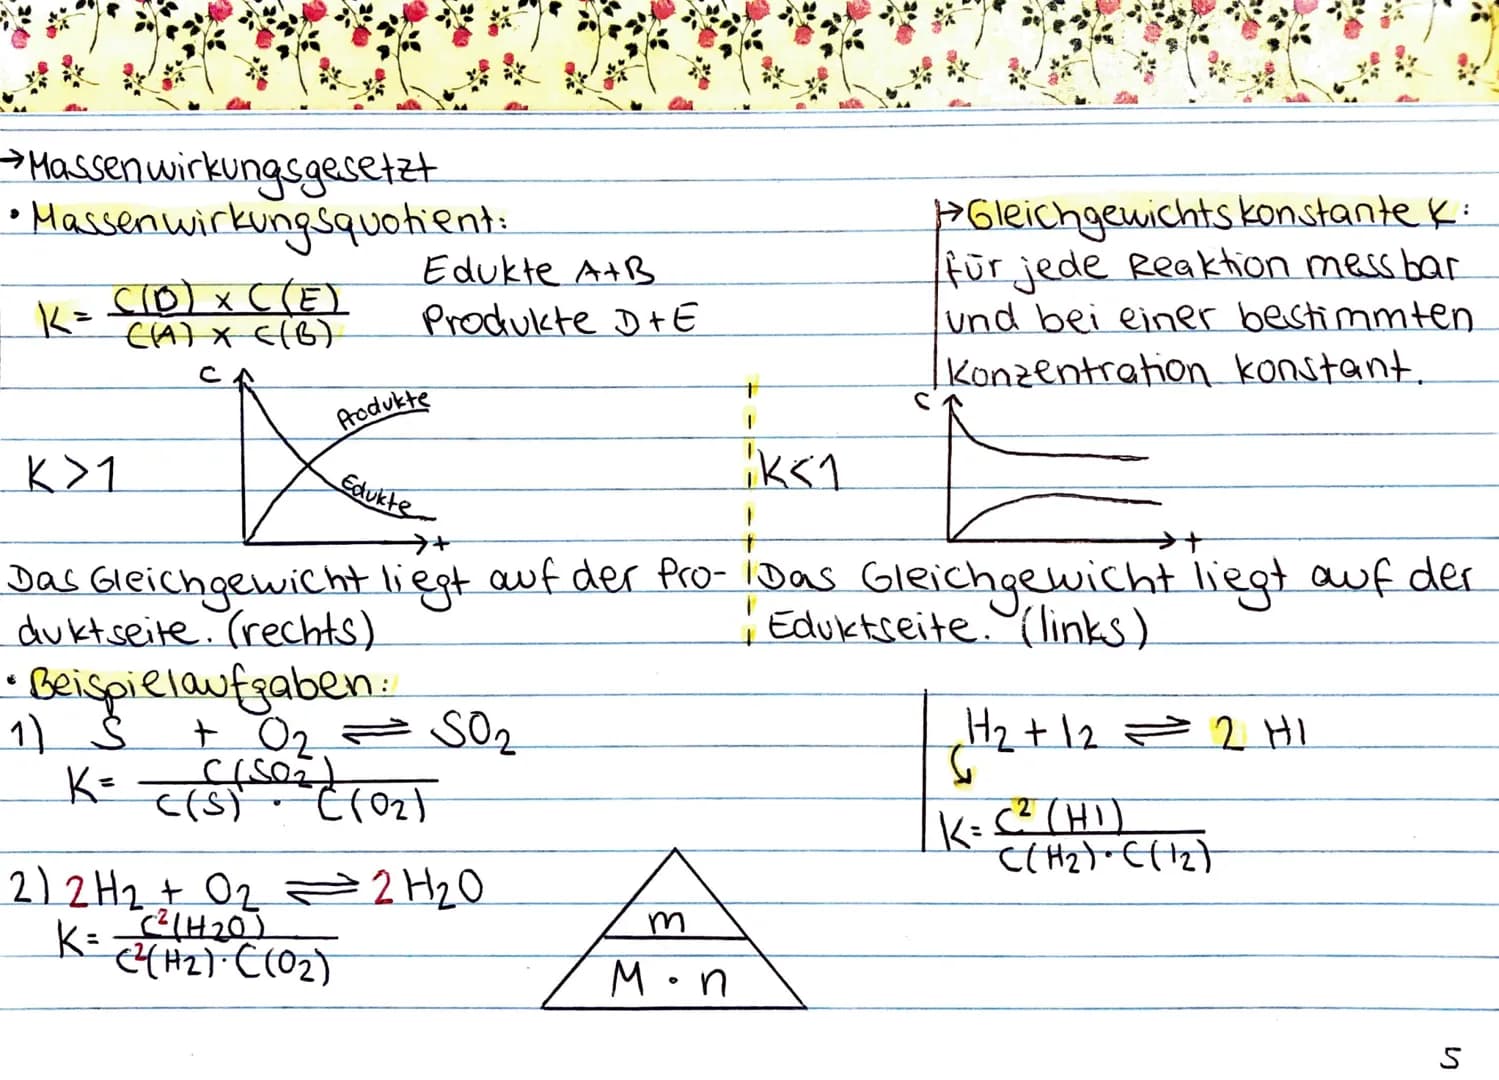 →Massenwirkungsgesetzt
• Massenwirkungsquotient:
K= C(D) x C(E)
C(A) x C(B)
Edukte A+B
Produkte D+E
→Gleichgewichtskonstante K:
für jede Reaktion messbar
und bei einer bestimmten
Konzentration konstant.
K>1
C
Produkte
Edukte
t
Das Gleichgewicht liegt auf der Pro-
duktseite. (rechts)
K<1
C
t
Das Gleichgewicht liegt auf der
Eduktseite. (links)
• Beispielaufgaben:
1) S + O2 ⇌ SO2
K= C(SO2)
C(S) · C(O2)
H2 + I2 ⇌ 2 HI
K= C²(HI)
C(H2)·C(I2)
2) 2H2 + O2 ⇌ 2H2O
K= C²(H2O)
C²(H2)·C(O2)
m
M · n
5